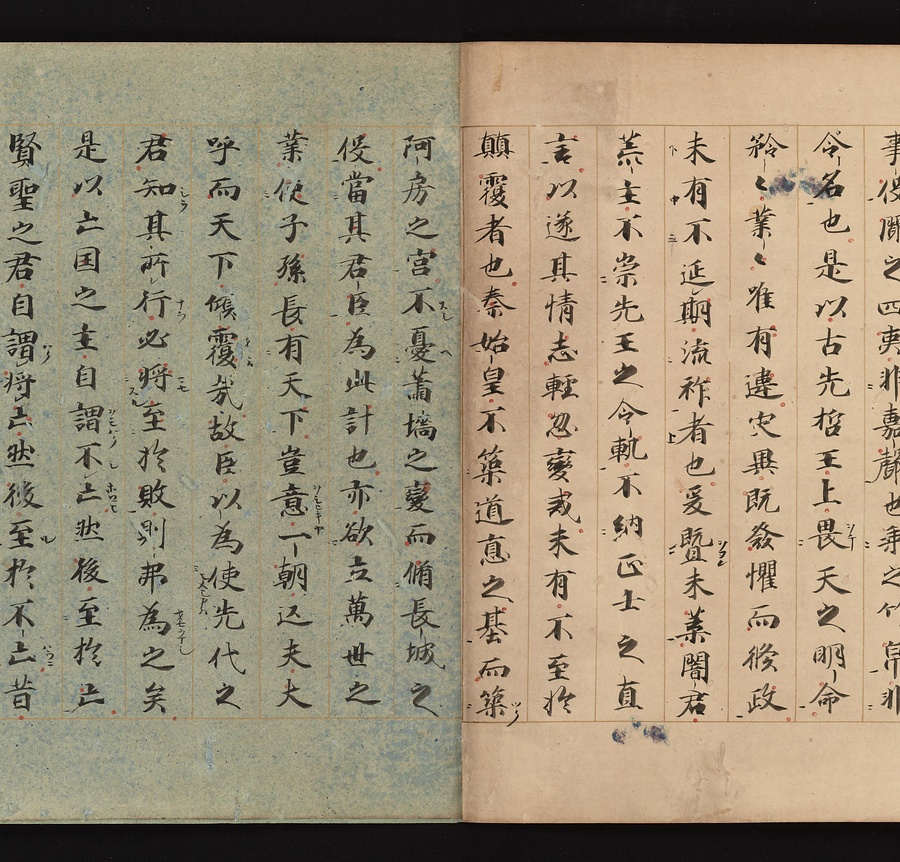 事役聞之四夷非嘉聲也垂之竹帛非
令名也是以古先哲王上畏天之明命
矜〻業〻唯有違灾異既發懼而修政
未有不延期流祚者也爰曁末葉闇君
荒主不崇先王之令軌不納正士之直
言以遂其情志輕忽變戒未有不至於
顛覆者也秦始皇不築道悳之基而築
阿房之宮不憂蕭墻之變而脩長城之
役當其君臣為此計也亦欲立萬世之
業使子孫長有天下豈意一朝匹夫大
呼而天下傾覆㢤故臣以為使先代之
君知其所行必将至於敗則弗為之矣
是以亡国之主自謂不亡然後至於亡
賢聖之君自謂将亡然後至於不亡昔